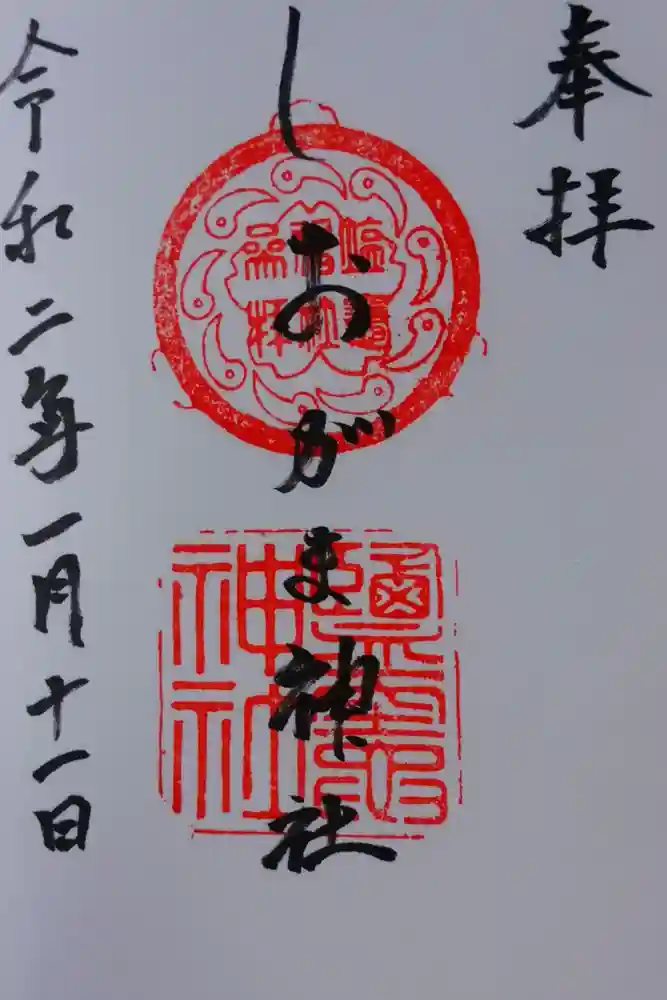 奉拝
しおがま神社
令和二年一月十一日
神社